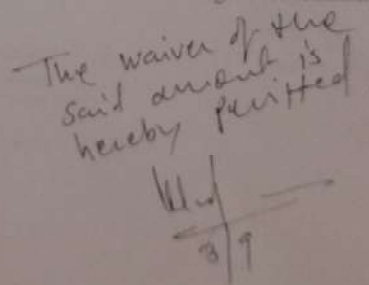 The waiver of the
said amount is
hereby permitted
3/9